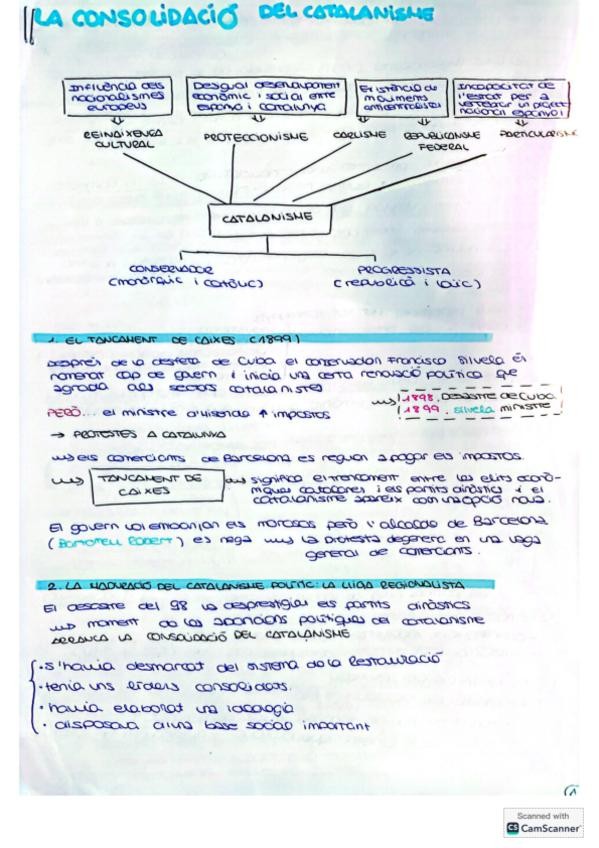 LA CONSOLIDACIÓ DEL CATALANISME
Influència dels nacionalismes europeus
Desigual desenvolupament econòmic i social entre espanya i catalunya
Existència de moviments anticentralistes
Incapacitat de l'estat per a vertebrar un projecte nacional espanyol
RENAIXENÇA CULTURAL
PROTECCIONISME
CARLISME
REPUBLICANISME FEDERAL
PARTICULARISME
CATALANISME
CONSERVADOR
(monàrquic i catòlic)
PROGRESSISTA
(republicà i laic)
1. EL TANCAMENT DE CAIXES (1899)
Després de la desfeta de Cuba el conservador Francisco Silvela és
nomenat cap de govern i inicia una certa renovació política que
agrada als sectors catalanistes
1898, DESASTRE DE CUBA
1899, Silvela MINISTRE
PERÒ... el ministre d'hisenda ↑ impostos
→ PROTESTES A CATALUNYA
els comerciants de Barcelona es neguen a pagar els impostos.
TANCAMENT DE CAIXES
significa el trencament entre les elits econò-
miques catalanes i els partits dinàstics i el
catalanisme apareix com una opció nova.
El govern vol empresonar els morosos però l'alcalde de Barcelona
(Bartomeu Robert) es nega la protesta degenera en una vaga
general de comerciants.
2. LA MADURACIÓ DEL CATALANISME POLÍTIC: LA LLIGA REGIONALISTA
El desastre del 98 va desprestigiar els partits dinàstics
moment de les aspiracions polítiques del catalanisme
ARRENCA LA CONSOLIDACIÓ DEL CATALANISME
· s'havia desmarcat del sistema de la Restauració
· tenia uns líders consolidats.
· havia elaborat una ideologia
· disposava d'una base social important
1
Scanned with
CS CamScanner